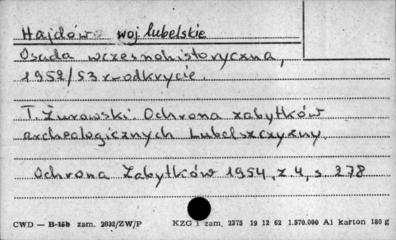 Hajdów woj lubelskie
Osada wczesnohistoryczna,
1952/53 r. odkrycie.
T. Żurowski. Ochrona zabytków
archeologicznych Lubelszczyzny.
Ochrona Zabytków 1954, z 4, s. 278
CWD — B-15b zam. 2632/ZW/P KZG 1 zam. 2375 19 12 62 1.570.000 A1 karton 180 g